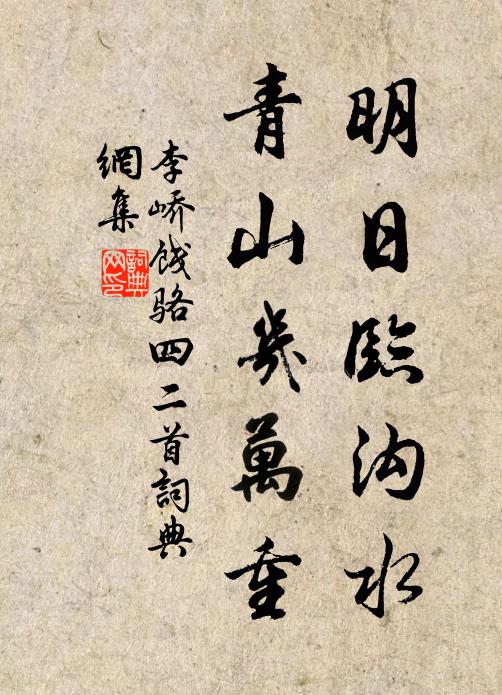 明日臨沟水
青山幾萬重
李嶠餞骆四二首詞典
網集
詞典
网印